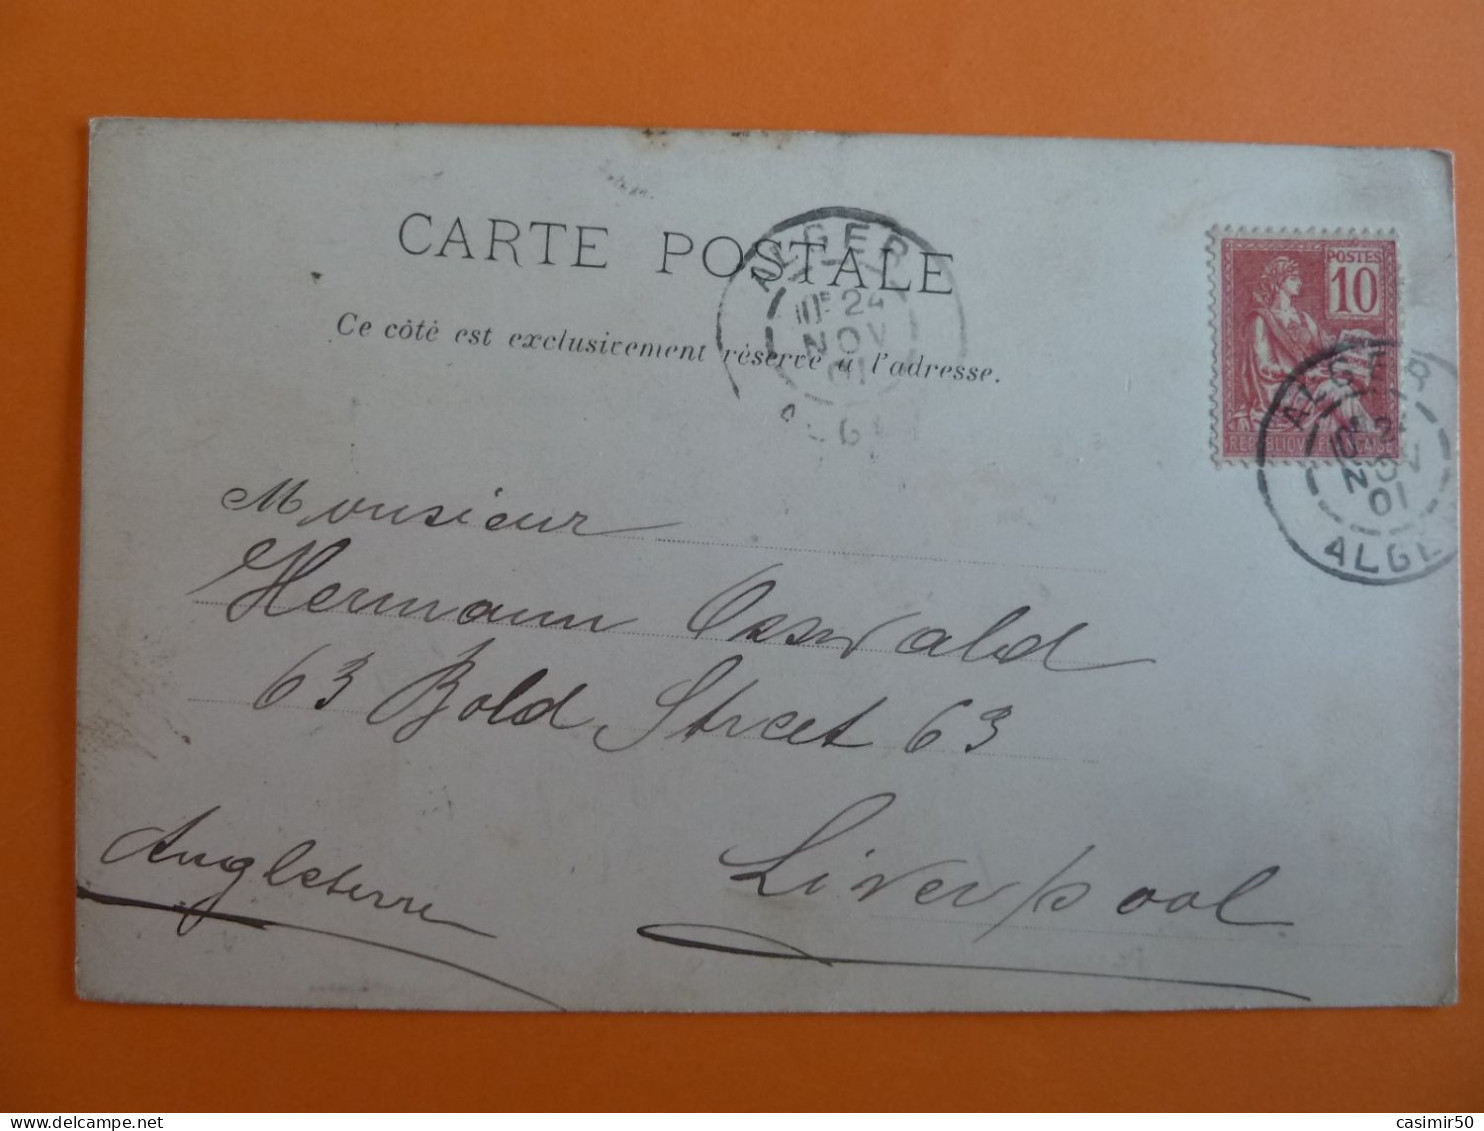 CARTE POSTALE
Ce côté est exclusivement réservé à l'adresse.
ALGER
10E 24
NOV
01
ALG
POSTES
10
REPUBLIQUE FRANÇAISE
ALGER
10E 2
NOV
01
ALGE
Monsieur
Hermann Osswald
63 Bold Street 63
Liverpool
Angleterre
www.delcampe.net
casimir50